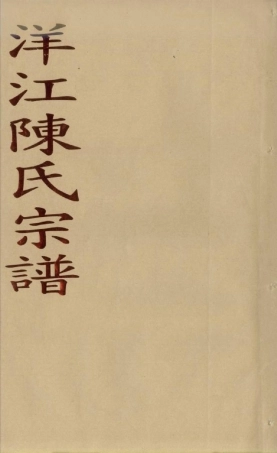 洋江陳氏宗譜